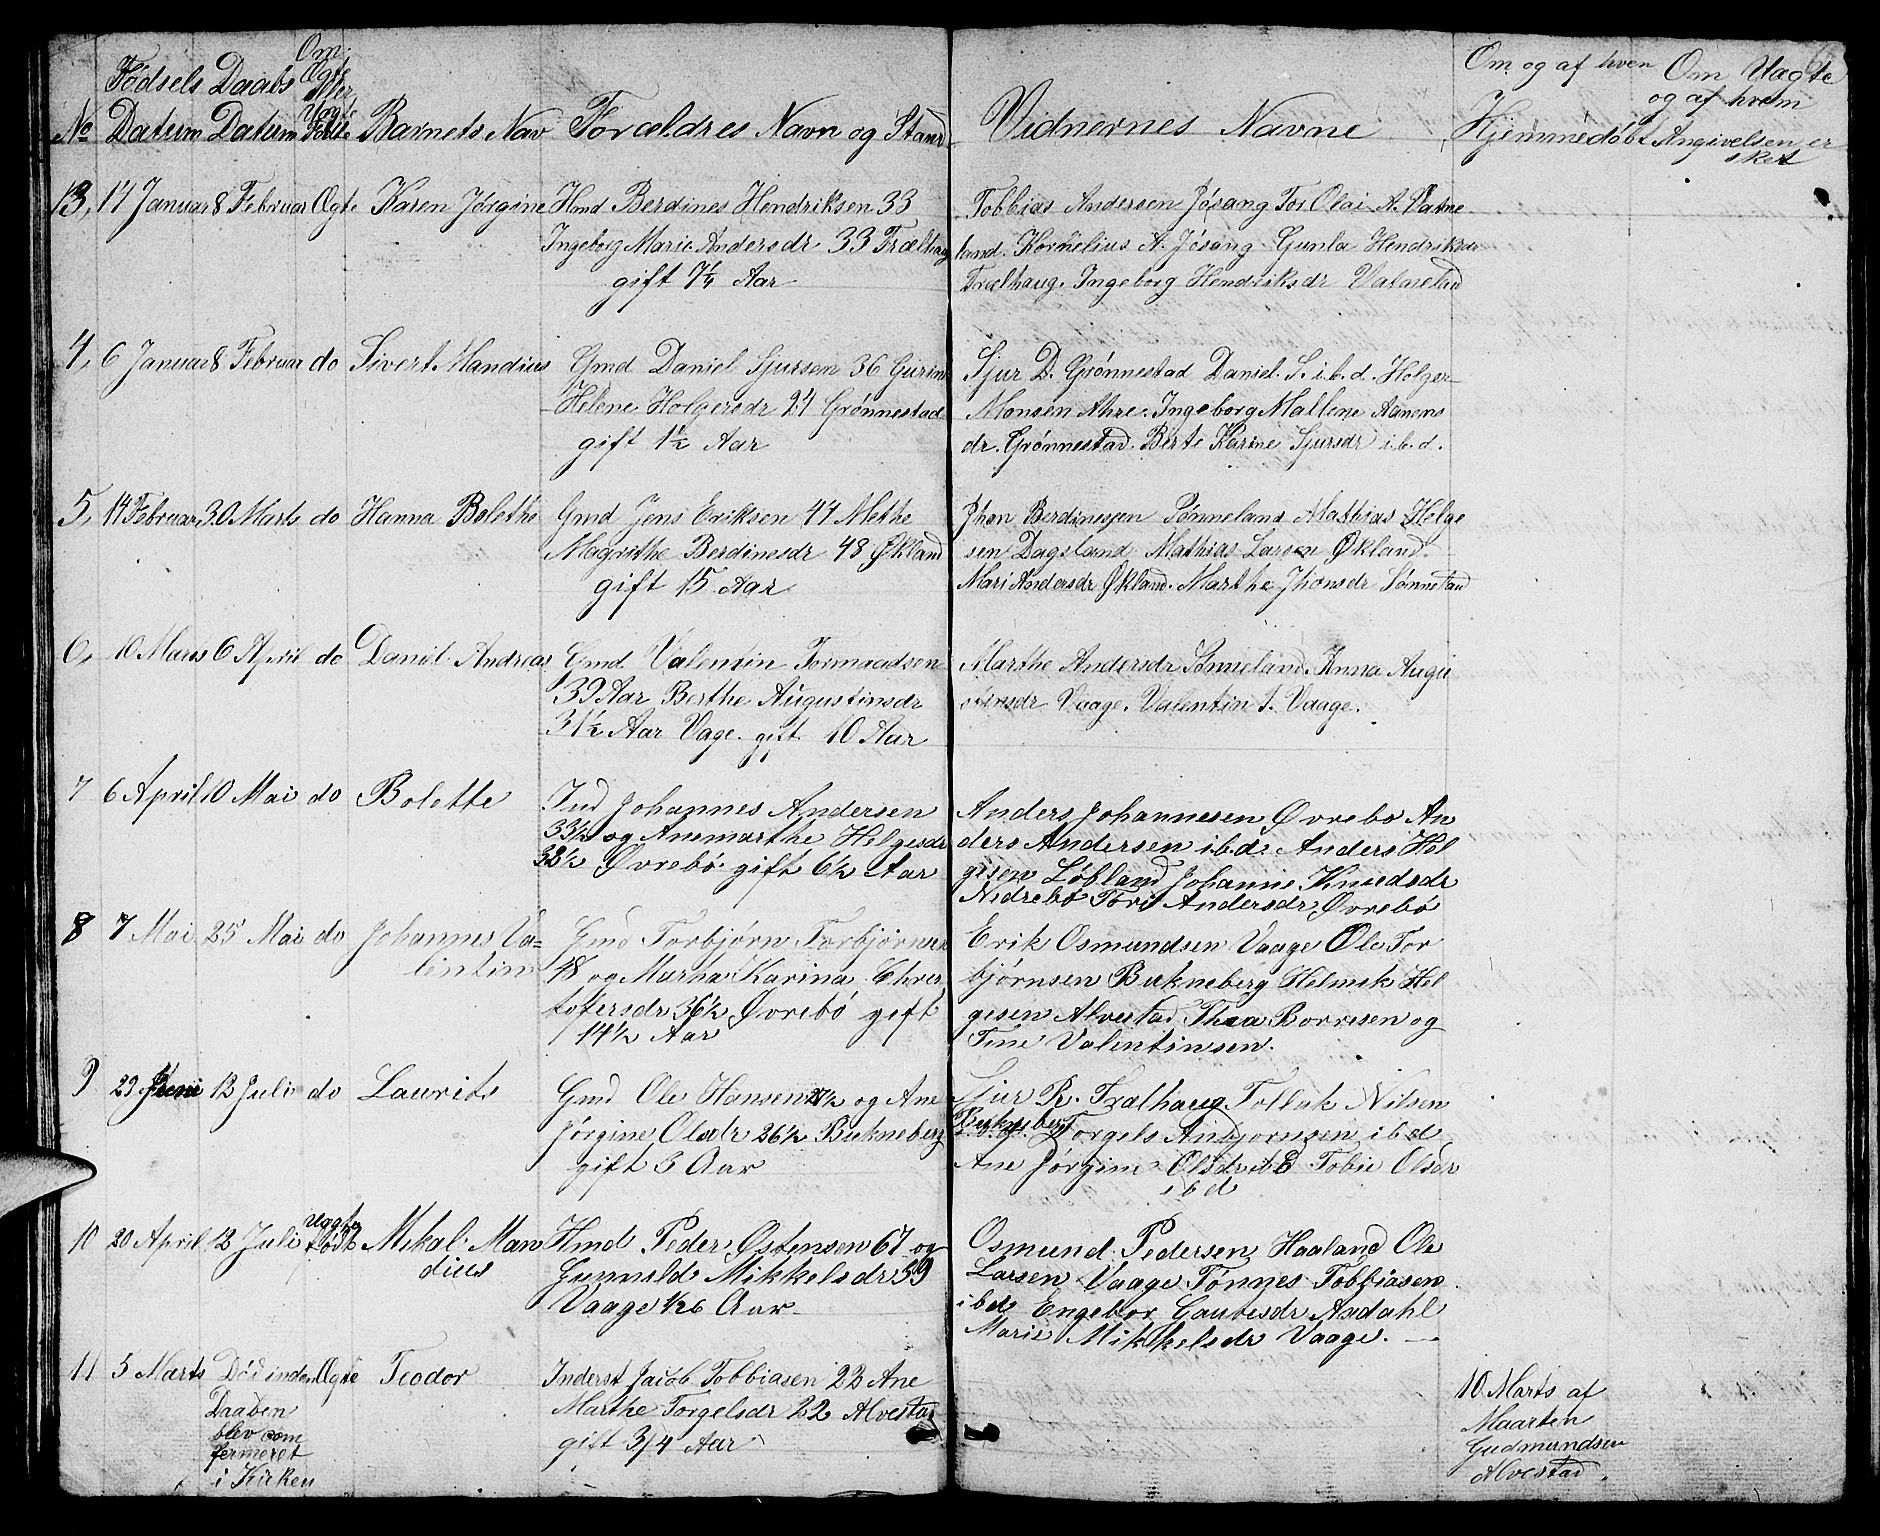 No Fødsels Datum Daabs Datum Om Ægte eller Uægte Fødte Barnets Nav Forældres Navn og Stand
Vidnernes Navne Om og af hvem Hjemmedöbt Om Uagte og af hvem Angivelsen er sket
13, 17 Januar 8 Februar Ægte Karen Jørgine Hmd Berdines Hendriksen 33
Ingeborg Marie Andersdr 33 Trælhaug
gift 7¼ Aar
Tobbias Andersen Jösang Tor Olai A. Vatne
land. Kornelius A. Jösang Gunla Hendriksdr
Trælhaug. Ingeborg Hendriksdr Vatneland
4, 6 Januar 8 Februar do Sivert Mandius Gmd Daniel Sjursen 36 Gurine
Helene Holgersdr 24 Grönnestad
gift 1½ Aar
Sjur D. Grönnestad Daniel. S. i.b.d. Holger
Monsen Ahre. Ingeborg Mallene Aanens
dr. Grönnestad. Berte Karine Sjursdr i.b.d.
5, 14 Februar 30 Marts do Hanna Bolethe Gmd Jens Eriksen 44 Methe
Magrithe Berdinesdr 48 Økland
gift 15 Aar
Jhon Berdinessen Sönneland Mathias Helge
sen Dagsland Mathias Larsen Økland.
Mari Andersdr Økland. Marthe Jhonsdr
6, 10 Marts 6 April do Daniel Andreas Gmd Valentin Tormaadsen
39 Aar Berthe Augustinsdr
31½ Aar Vage. gift 10 Aar
Marthe Andersdr Sönneland. Anna Augu
stinsdr Vaage. Valentin T. Vaage.
7 6 April 10 Mai do Bolette Ind Johannes Andersen
33½ og Anemarthe Helgesdr
32½ Øvrebö gift 6½ Aar
Anders Johannesen Øvrebo An
ders Andersen ibd. Anders Hel
gesen Löbland Johanne Knudsdr
Nedrebö Tori Andersdr Øvrebö
8 7 Mai 25 Mai do Johannes Va=
lentin Gmd Torbjörn Torbjörnsen
48 og Martha Karina Chris
tofersdr 36½ Øvrebö gift
14½ Aar
Erik Osmundsen Vaage Ole Tor
björnsen Bukneberg Helmik Hel
gesen Alvestad Thea Borresen og
Tine Valentinsen.
9 29 Juni 13 Juli do Laurits Gmd Ole Hansen 27½ og Ane
Jörgine Olsdr 26½ Bukneberg
gift 3 Aar
Sjur R. Trælhaug Tollak Nilsen
Bukneberg Torgels Anbjornsen ibd
Ane Jörgine Olsdr ibd Tobie Olsdr
ibd
10 20 April 13 Juli Uægte Födt Mikal Man
dius Hmd Peder Østensen 67 og
Gunnild Mikkelsdr 39
Vaage 1/26 Aar
Osmund Pedersen Haaland Ole
Larsen Vaage Tönnes Tobbiasen
ibd Engebor Gautesdr Aadahl
Marie Mikkelsdr Vaage.
11 5 Marts Död inden Ægte Teodor Inderst Jacob Tobbiasen 23 Ane
Daaben Marthe Torgelsdr 22 Alvestad
blev com gift 3/4 Aar
fermeret
i Kirken
10 Marts af
Maarten
Gudmundsen
Alvestad.